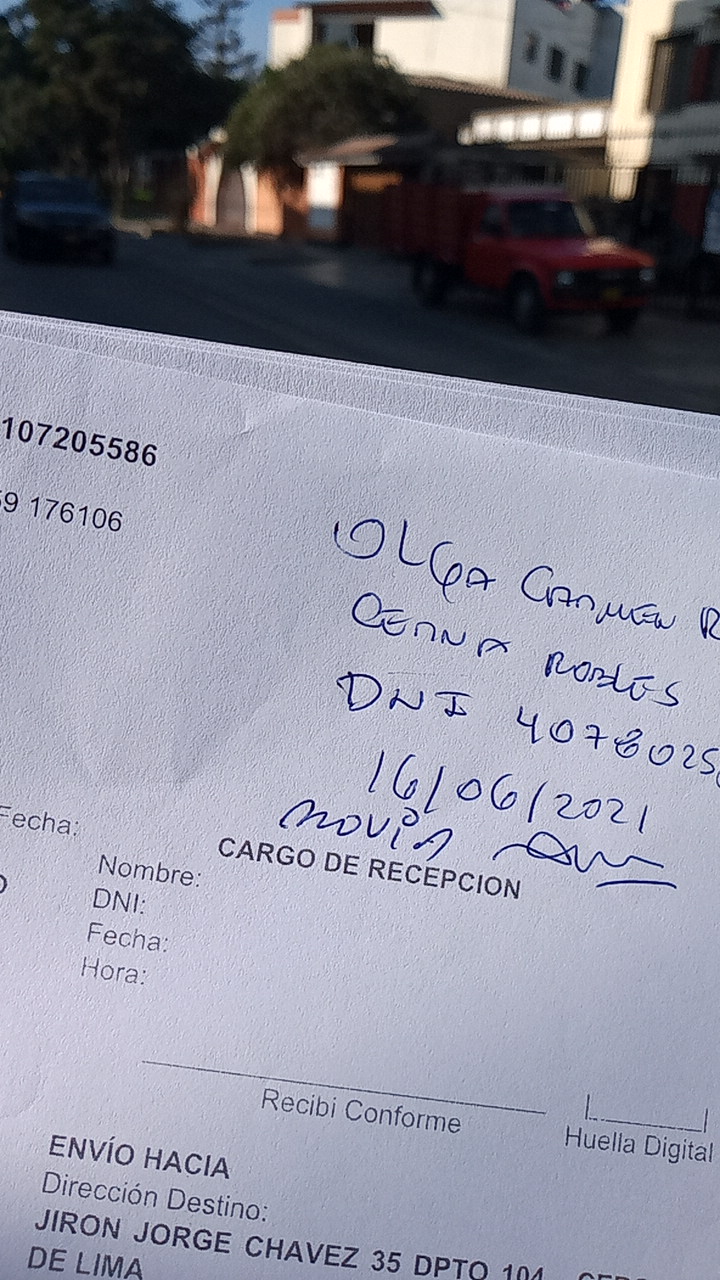 107205586
59 176106
OLGA CARMEN R
CERNA ROBLES
DNI 4078025
16/06/2021
NOVIA
Fecha:
CARGO DE RECEPCION
Nombre:
DNI:
Fecha:
Hora:
Recibi Conforme
Huella Digital
ENVÍO HACIA
Dirección Destino:
JIRON JORGE CHAVEZ 35 DPTO 104
DE LIMA